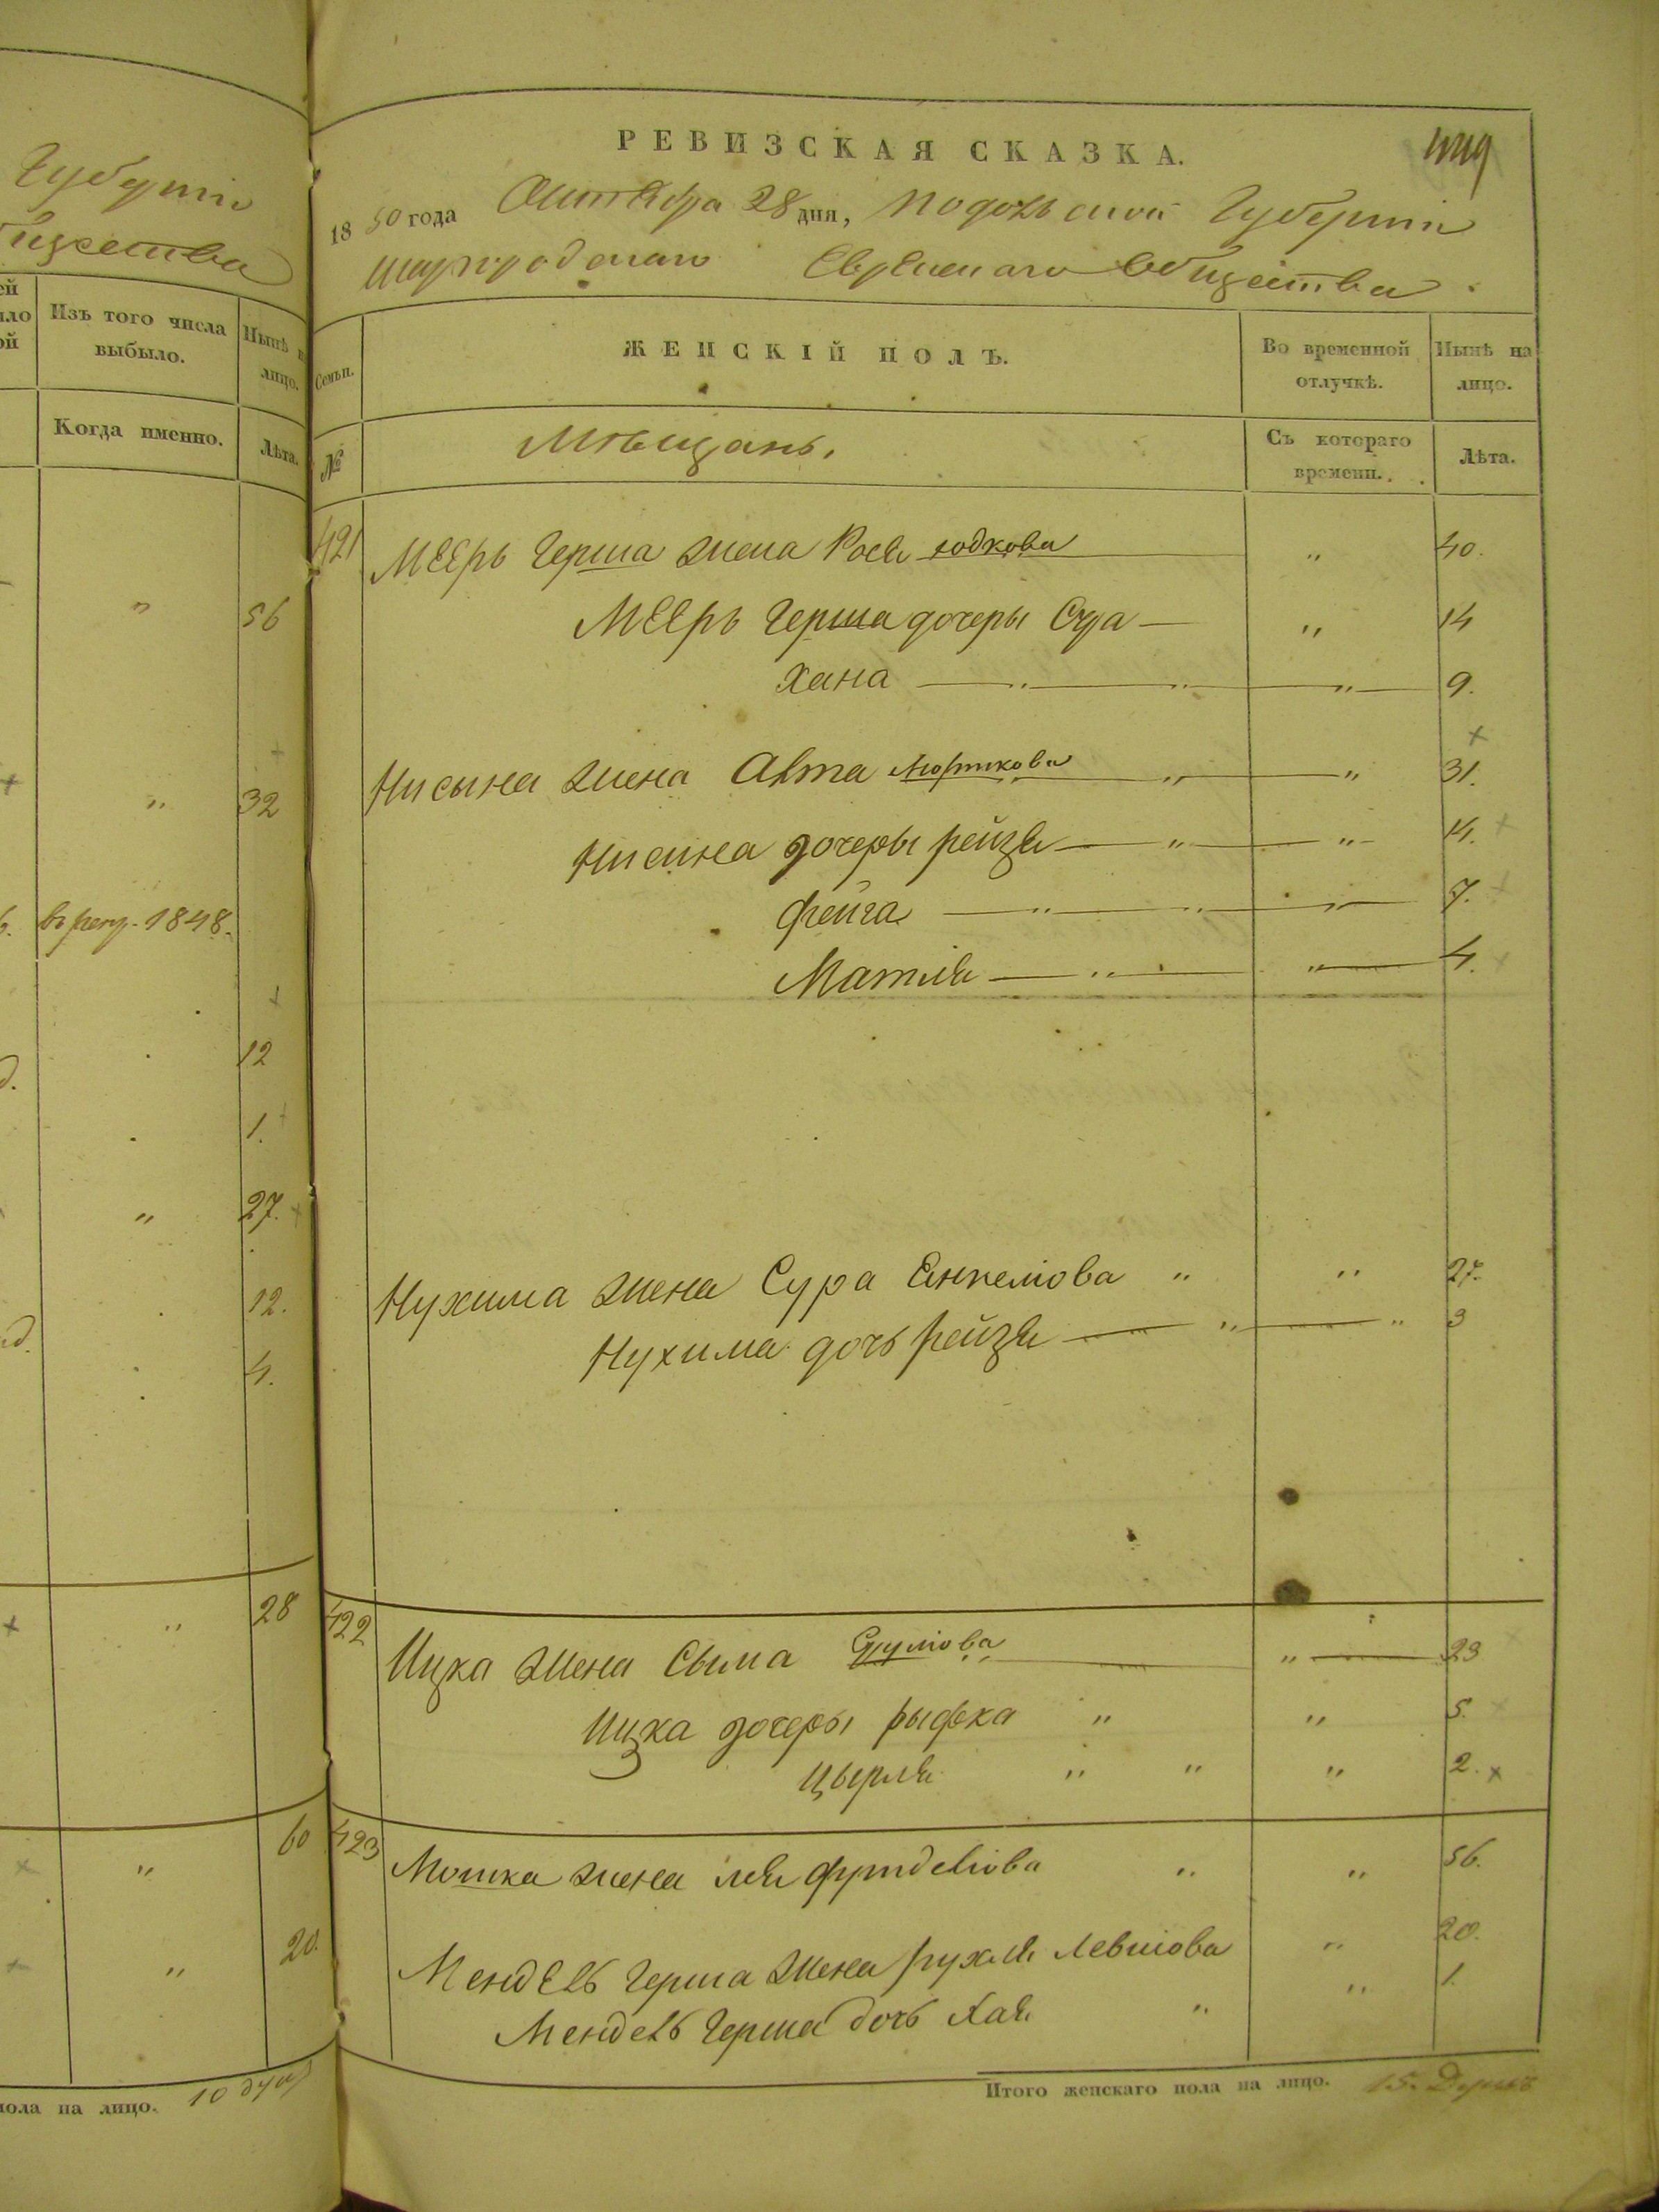 Губерніи
Изъ того числа выбыло.
Нынѣ на лицо.
Когда именно.
Лѣта.
" 56
" 32
въ рекр. 1848.
12
1.
" 27.
12.
4.
" 28
" 60
" 20.
пола на лицо. 10 душ
РЕВИЗСКАЯ СКАЗКА.
1850 года Октября 28 дня, Подольской Губерніи
Шаргродскаго Еврейскаго Общества.
Семьи.
ЖЕНСКІЙ ПОЛЪ.
Во временной отлучкѣ.
Нынѣ на лицо.
№
Мѣщанъ.
Съ котораго времени.
Лѣта.
421 Мееръ Герша жена Рося Юдкова " 40.
Мееръ Герша дочеры Сура " 14
Хана " " " 9.
Нисына жена Алта Морткова " " 31.
Нисына дочеры Рейзя " " 14.
Фейга " " " 7.
Матля " " 4.
Нухима жена Сура Енкелiова " " 27.
Нухима дочь Рейзя " " 3
422 Ицка жена Сыма Срулiова " 23
Ицка дочеры Рыфка " " 5.
Цырля " " " 2.
423 Мошка жена Лея " " 56.
Мендель Герша жена Рухля Левiова " 20.
Мендель Герша дочь Хая " " 1.
Итого женскаго пола на лицо. 15. Душъ